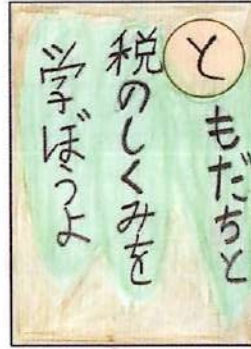 ともだちと
税のしくみを
学ぼうよ